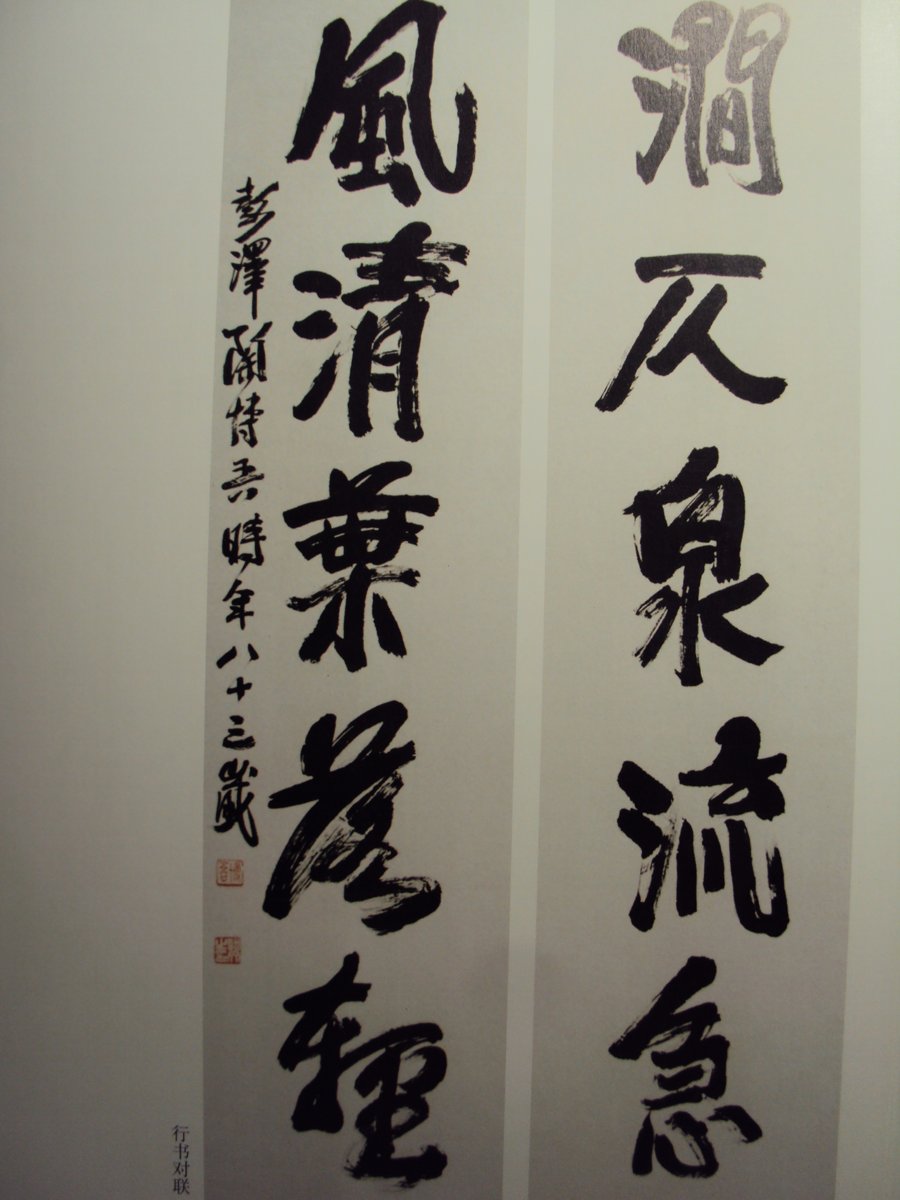 澗仄泉流急
風清葉落輕
彭澤陶博吾時年八十三歲
行书对联